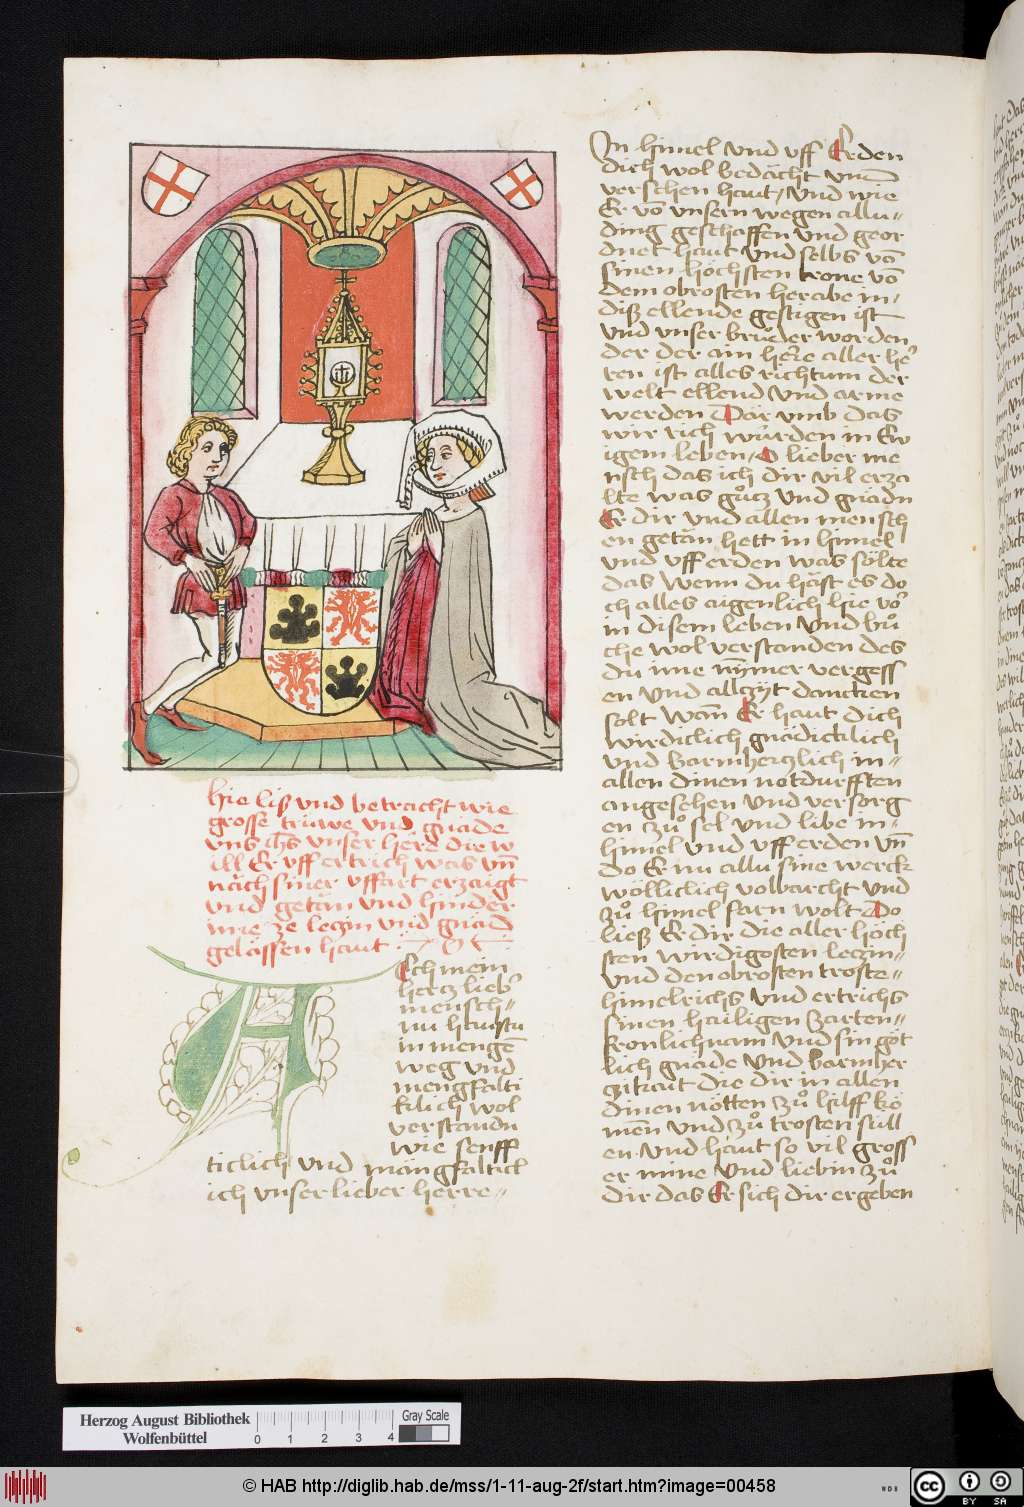 Hie liß vnd betracht wie
grosse trüwe vnd gnade
vns ih̄s vnser here die w
ill Er vff ertrich was vn̄
näch siner vffart erzaigt
vnd getän vnd hinder
ime ze leczin vnd gnäd
gelässen haut
Ach mein
hercz lieb'
mensch-
nu haustu
in mengē
weg vnd
mengfalti
klich wol
verstandn
wie senfft
ticlich vnd mangfaltcl
ich vnser lieber herre-
In himel vnd vff Erden
dich wol bedächt vnd
versehen haut / Vnd wie
Er vō vnsern wegen allu-
ding geschaffen vnd geor
dnet haut Vnd selbs vō
sinen höchsten krone vō
dem obrosten herabe in-
diß ellende gestigen ist
Vnd vnser brüder worden
der der ain here aller he'
ren ist alles richtum der
welt ellend Vnd arme
werden Dar vmb das
wir rich würden in Ew
igem leben / O lieber me
nsch das ich dir vil erza
lte was gůcz vnd gnädn
Er dir vnd allen mensch
en getän hett in himel
vnd vff erden was sölte
das Wenn du häst es do
ch alles aigenlich hie vo'
in disem leben Vnd bů
che wol verstanden des
du ime nymer vergess
en Vnd allczyt dancken
solt Wan̄ Er haut dich
wirdiclich gnädicklich
vnd Barmherczlich in-
allen dinen notdurfften
angesehen Vnd versorg
en zů sel vnd libe in-
himel vnd vff erden vn̄
do Er nu allu sine werck
wölliclich volbracht vnd
zů himel farn wolt Do
ließ Er dir die aller höch
sten wirdigosten leczin-
Vnd den obrosten troste-
himelrichs vnd ertrichs
sinen hailigen zarten-
fronlichnam Vnd sin göt
lich gnäde Vnd barmher
czikait die dir in allen
dinen nötten zů hilff kö
men Vnd zů trosten süll
en Vnd haut so vil gross
er mine Vnd liebin zů
dir das Er sich dir ergeben
Herzog August Bibliothek
Wolfenbüttel
0 1 2 3 4
Gray Scale
© HAB http://diglib.hab.de/mss/1-11-aug-2f/start.htm?image=00458
WDB
cc BY SA